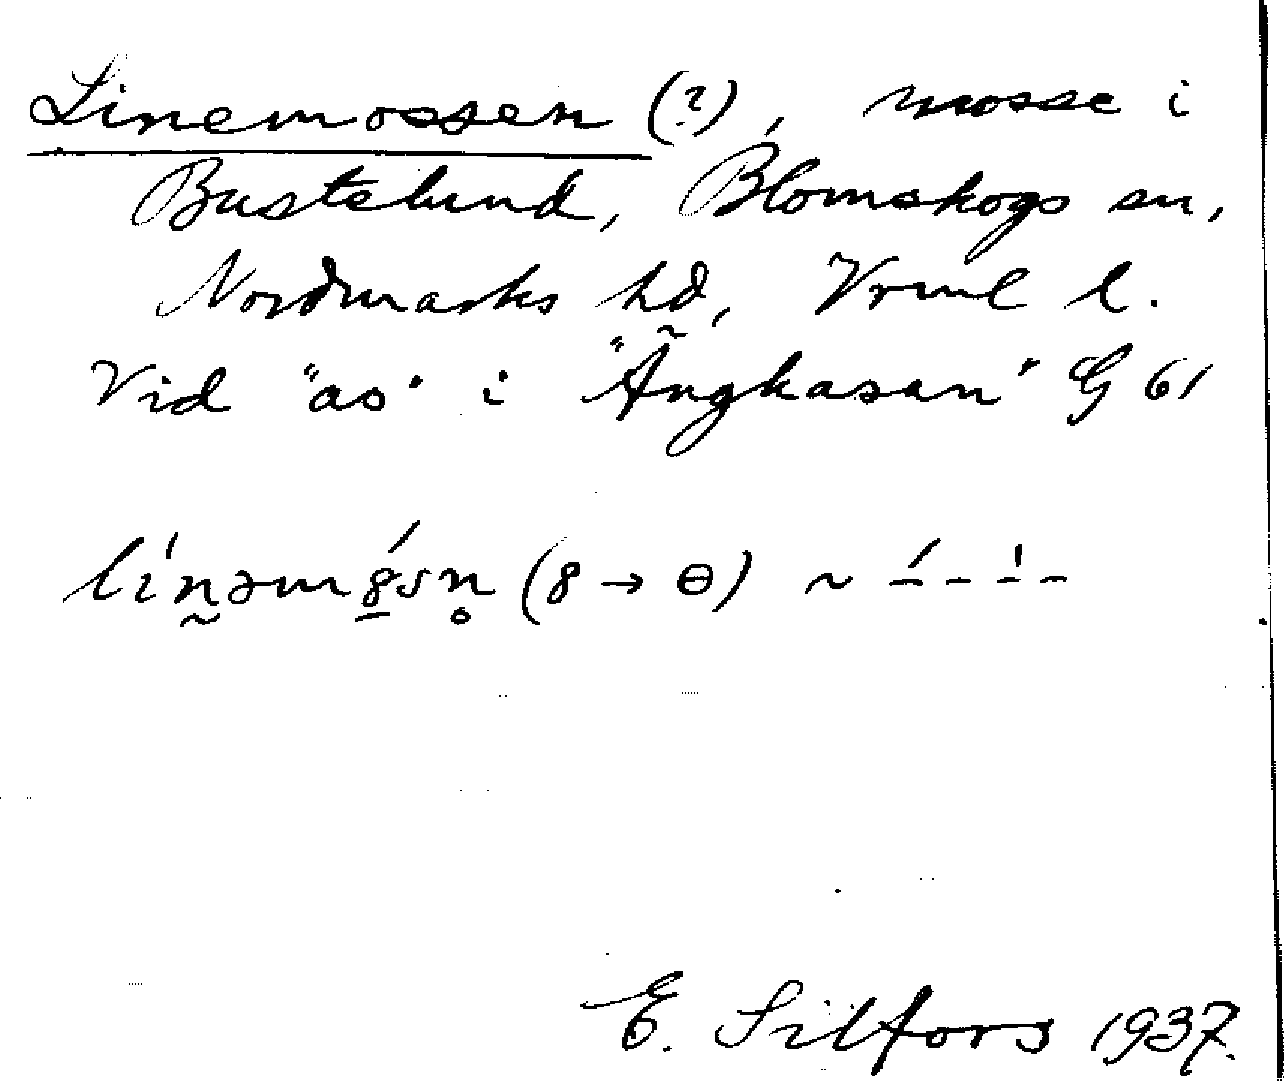 Linemossen (?), mosse i
Bustelund, Blomskogs sn,
Nordmarks hd, Vrml l.
Vid "as" i "Ängkasan" G 61
lı́n̰əmȣ́sn̥ (ȣ → ɵ) ~ –́ – –̍ –
E. Silfors 1937.